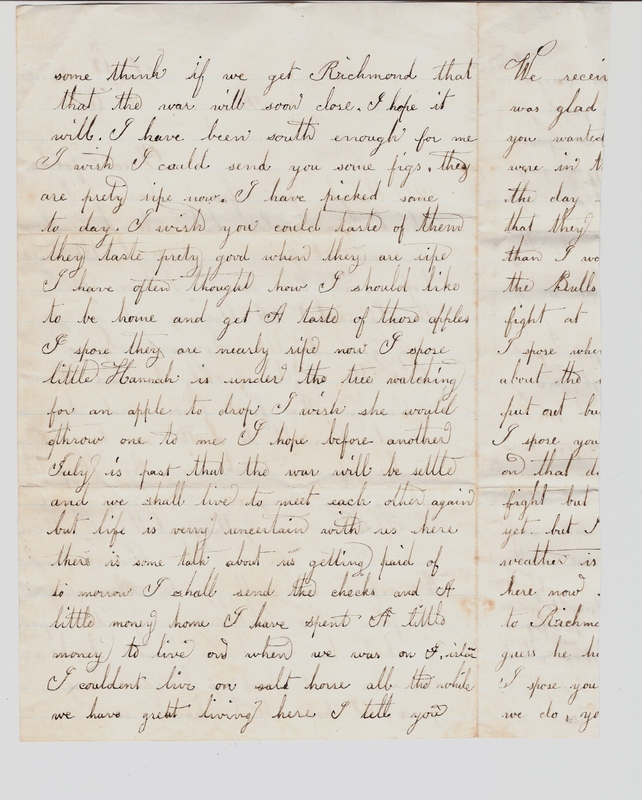 some think if we get Richmond that
that the war will soon close. I hope it
will. I have been south enough for me
I wish I could send you some figs. they
are prety ripe now. I have picked some
to day. I wish you could taste of them
they taste prety good when they are ripe
I have often thought how I should like
to be home and get A taste of those apples
I spose they are nearly ripe now I spose
little Hannah is under the tree watching
for an apple to drop I wish she would
throw one to me I hope before another
July is past that the war will be settle
and we shall live to meet each other again
but life is verry uncertain with us here
there is some talk about us getting paid of
to morrow I shall send the checks and A
little money home I have spent A little
money to live on when we was on
I couldent live on salt horse all the while
we have great living here I tell you
We recei
was glad
you wanted
were in t
the day
that they
than I wo
the Bulls
fight at
I spose whe
about the
put out bu
I spose you
on that d
fight but
yet. but I
weather is
here now
to Richmo
guess he h
I spose you
we do, yo